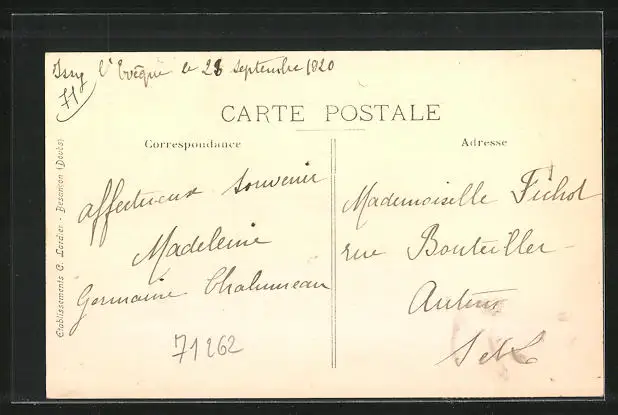 Issy l'Evêque le 28 septembre 1820
71
CARTE POSTALE
Correspondance
Adresse
affectueux souvenir
Madeleine
Germaine Chalumeau
71262
Mademoiselle Fichot
rue Bouteiller
Autun
S et L
Etablissements C. Lardier - Besancon (Doubs)